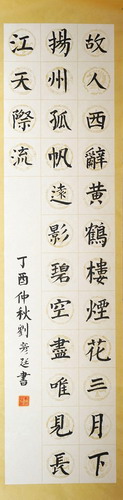 故人西辭黃鶴樓煙花三月下
揚州孤帆遠影碧空盡唯見長
江天際流
丁酉仲秋劉延書